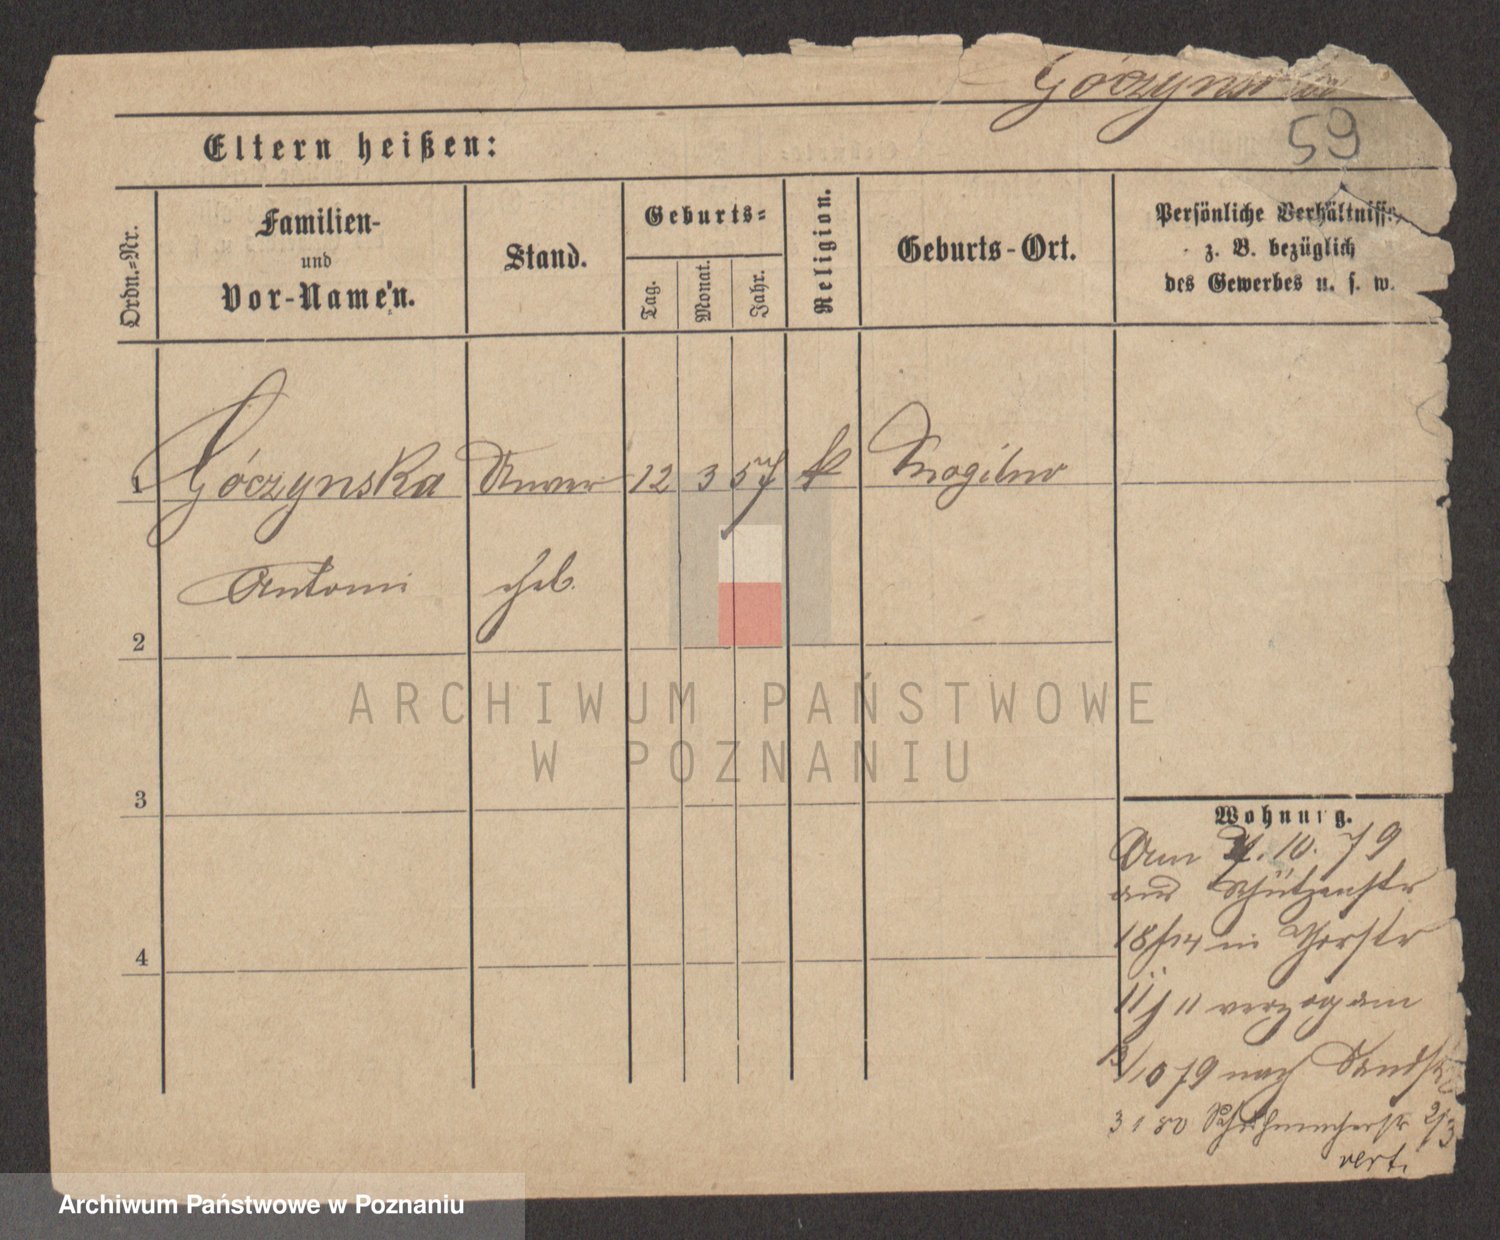 Góczynska
59
Eltern heißen:
Ordn.-Nr.
Familien-
und
Vor-Namen.
Stand.
Geburts-
Tag.
Monat.
Jahr.
Religion.
Geburts-Ort.
Persönliche Verhältnisse,
z. B. bezüglich
des Gewerbes u. s. w.
1 Góczynska 12 3 57 k Mogilno
Antoni
2
3
4
ARCHIWUM PAŃSTWOWE
W POZNANIU
Wohnung.
Am 10. 79
aus Schützenstr
18/14 in Thorstr
11/11 verzog am
/10 79 nach
3 1 80 2/3
verz.
Archiwum Państwowe w Poznaniu